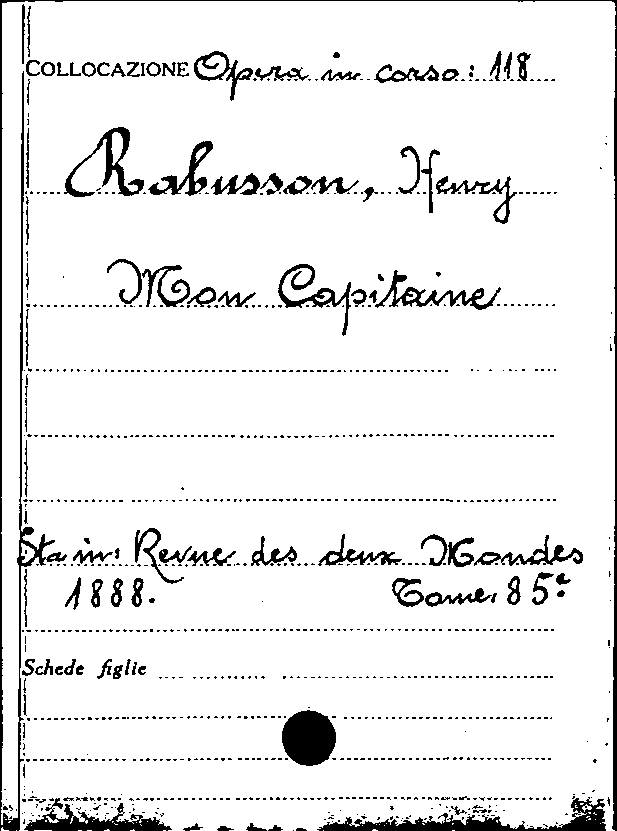 COLLOCAZIONE Opera in corso: 118
Rabusson, Henry
Mon Capitaine
Sta in: Revue des deux Mondes
1888. Tome 85º
Schede figlie